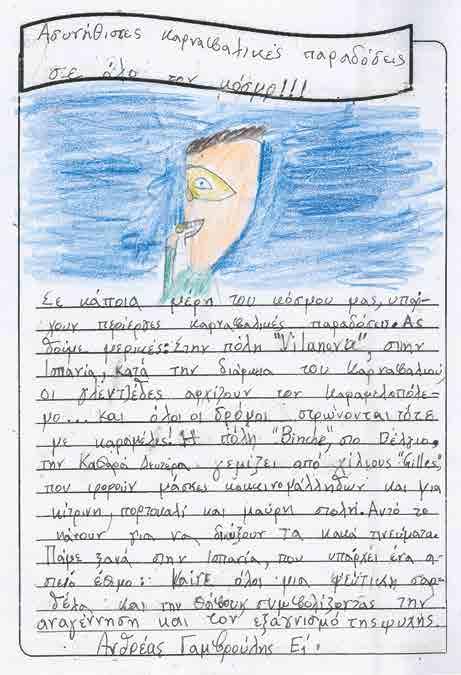 Ασυνήθιστες καρναβαλικές παραδόσεις
σε όλο τον κόσμο!!!
Σε κάποια μέρη του κόσμου μας, υπάρ-
χουν περίεργες καρναβαλικές παραδόσεις. Ας
δούμε μερικές: Στην πόλη "Vilanova", στην
Ισπανία, κατά την διάρκεια του Καρναβαλιού
οι γλεντζέδες αρχίζουν τον καραμελοπόλε-
μο... και όλοι οι δρόμοι στρώνονται τότε
με καραμέλες! Η πόλη "Binche", στο Βέλγιο,
την Καθαρά Δευτέρα γεμίζει από χίλιους "Gilles",
που φορούν μάσκες κοκκινομάλληδων και μια
κίτρινη, πορτοκαλί και μαύρη στολή. Αυτό το
κάνουν για να διώξουν τα κακά πνεύματα.
Πάμε ξανά στην Ισπανία, που υπάρχει ένα α-
στείο έθιμο: Καίνε όλοι μια ψεύτικη σαρ-
δέλα και την θάβουν συμβολίζοντας την
αναγέννηση και τον εξαγνισμό της ψυχής.
Ανδρέας Γαμβρούλης Ε1'